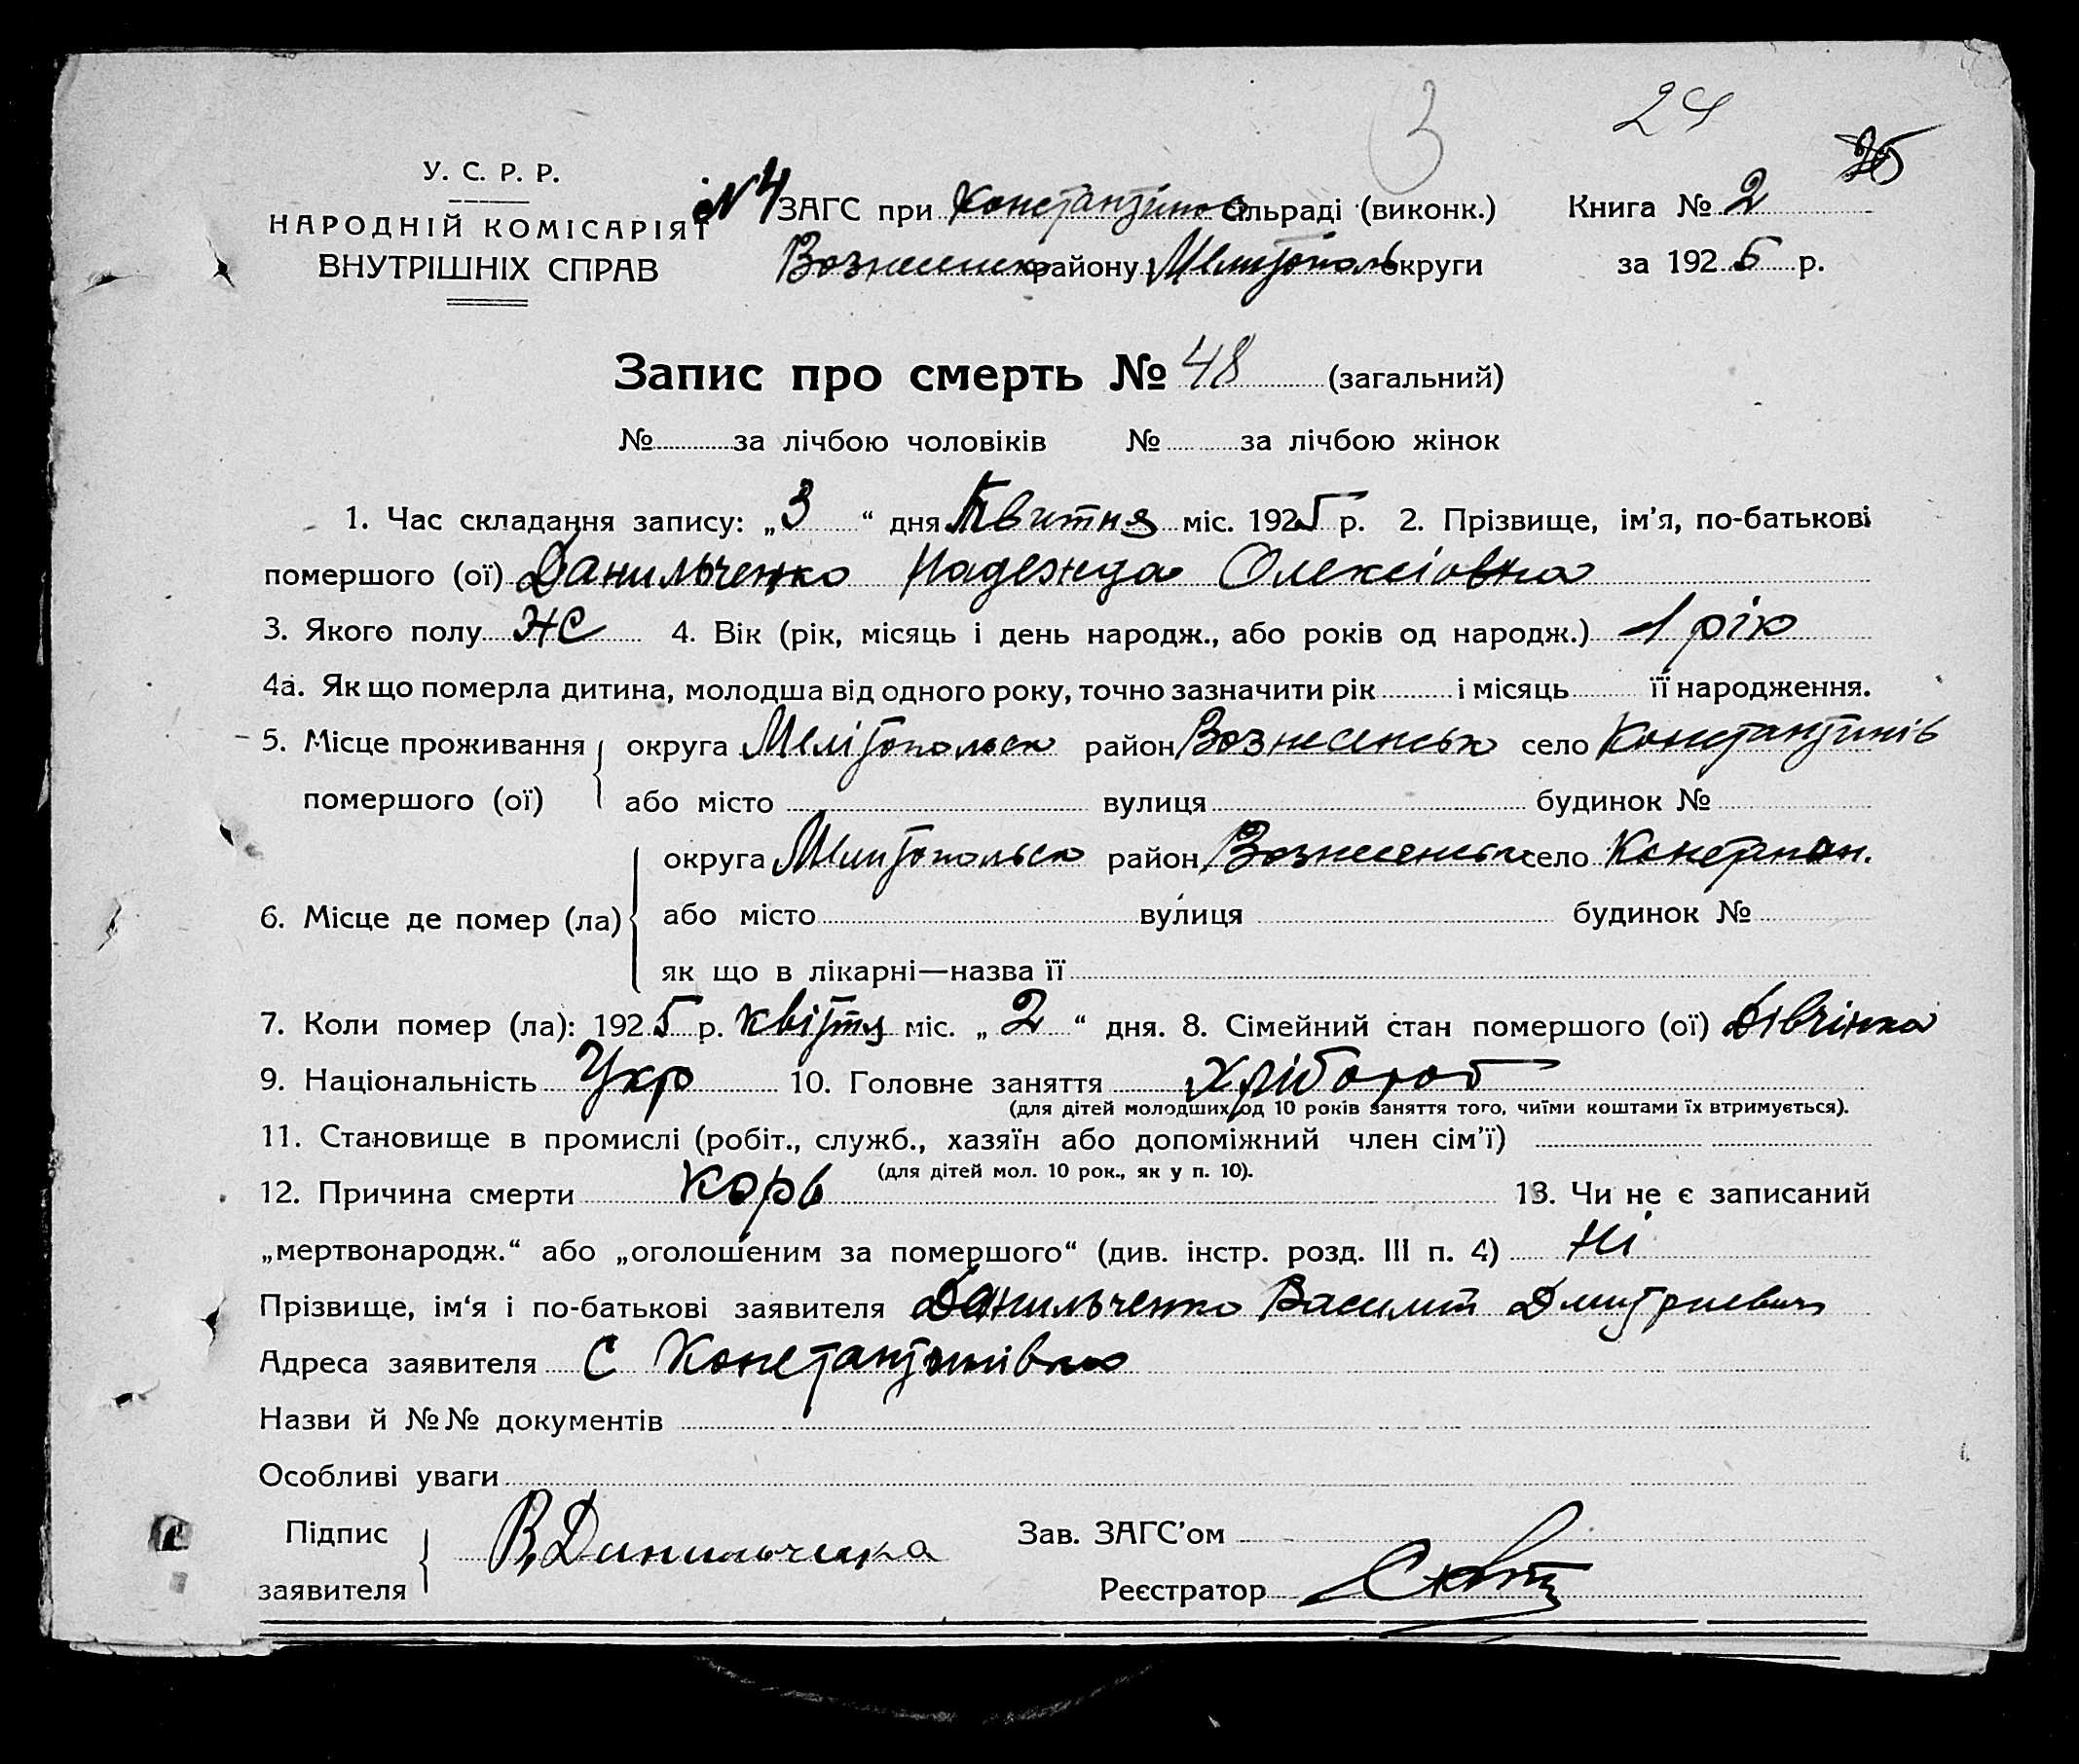 3
24
У. С. Р. Р.
НАРОДНІЙ КОМІСАРІЯТ
ВНУТРІШНІХ СПРАВ
№4 ЗАГС при Константинов сільраді (виконк.) Книга № 2
Вознесенск району Мелитополь округи за 1925 р.
Запис про смерть № 48 (загальний)
№ за лічбою чоловіків № за лічбою жінок
1. Час складання запису: „3“ дня Квитня міс. 1925 р. 2. Прізвище, ім'я, по-батькові
помершого (ої) Данильченко Надежда Олексіовна
3. Якого полу ЖС 4. Вік (рік, місяць і день народж., або років од народж.) 1 рік
4а. Як що померла дитина, молодша від одного року, точно зазначити рік і місяць її народження.
5. Місце проживання помершого (ої) округа Мелітопольск район Вознесенськ село Константинів
або місто вулиця будинок №
6. Місце де помер (ла) округа Мелитопольск район Вознесенськ село Констан.
або місто вулиця будинок №
як що в лікарні—назва її
7. Коли помер (ла): 1925 р. квітня міс. „2“ дня. 8. Сімейний стан помершого (ої) дівчінка
9. Національність Укр 10. Головне заняття хлібороб
(для дітей молодших од 10 років заняття того, чиїми коштами їх втримується).
11. Становище в промислі (робіт., служб., хазяїн або допоміжний член сім'ї)
(для дітей мол. 10 рок., як у п. 10).
12. Причина смерти корь 13. Чи не є записаний
„мертвонародж.“ або „оголошеним за помершого“ (див. інстр. розд. III п. 4) Ні
Прізвище, ім'я і по-батькові заявителя Данильченко Василий Дмитриевич
Адреса заявителя С Константинівка
Назви й №№ документів
Особливі уваги
Підпис заявителя В. Данильченка Зав. ЗАГС'ом
Реєстратор